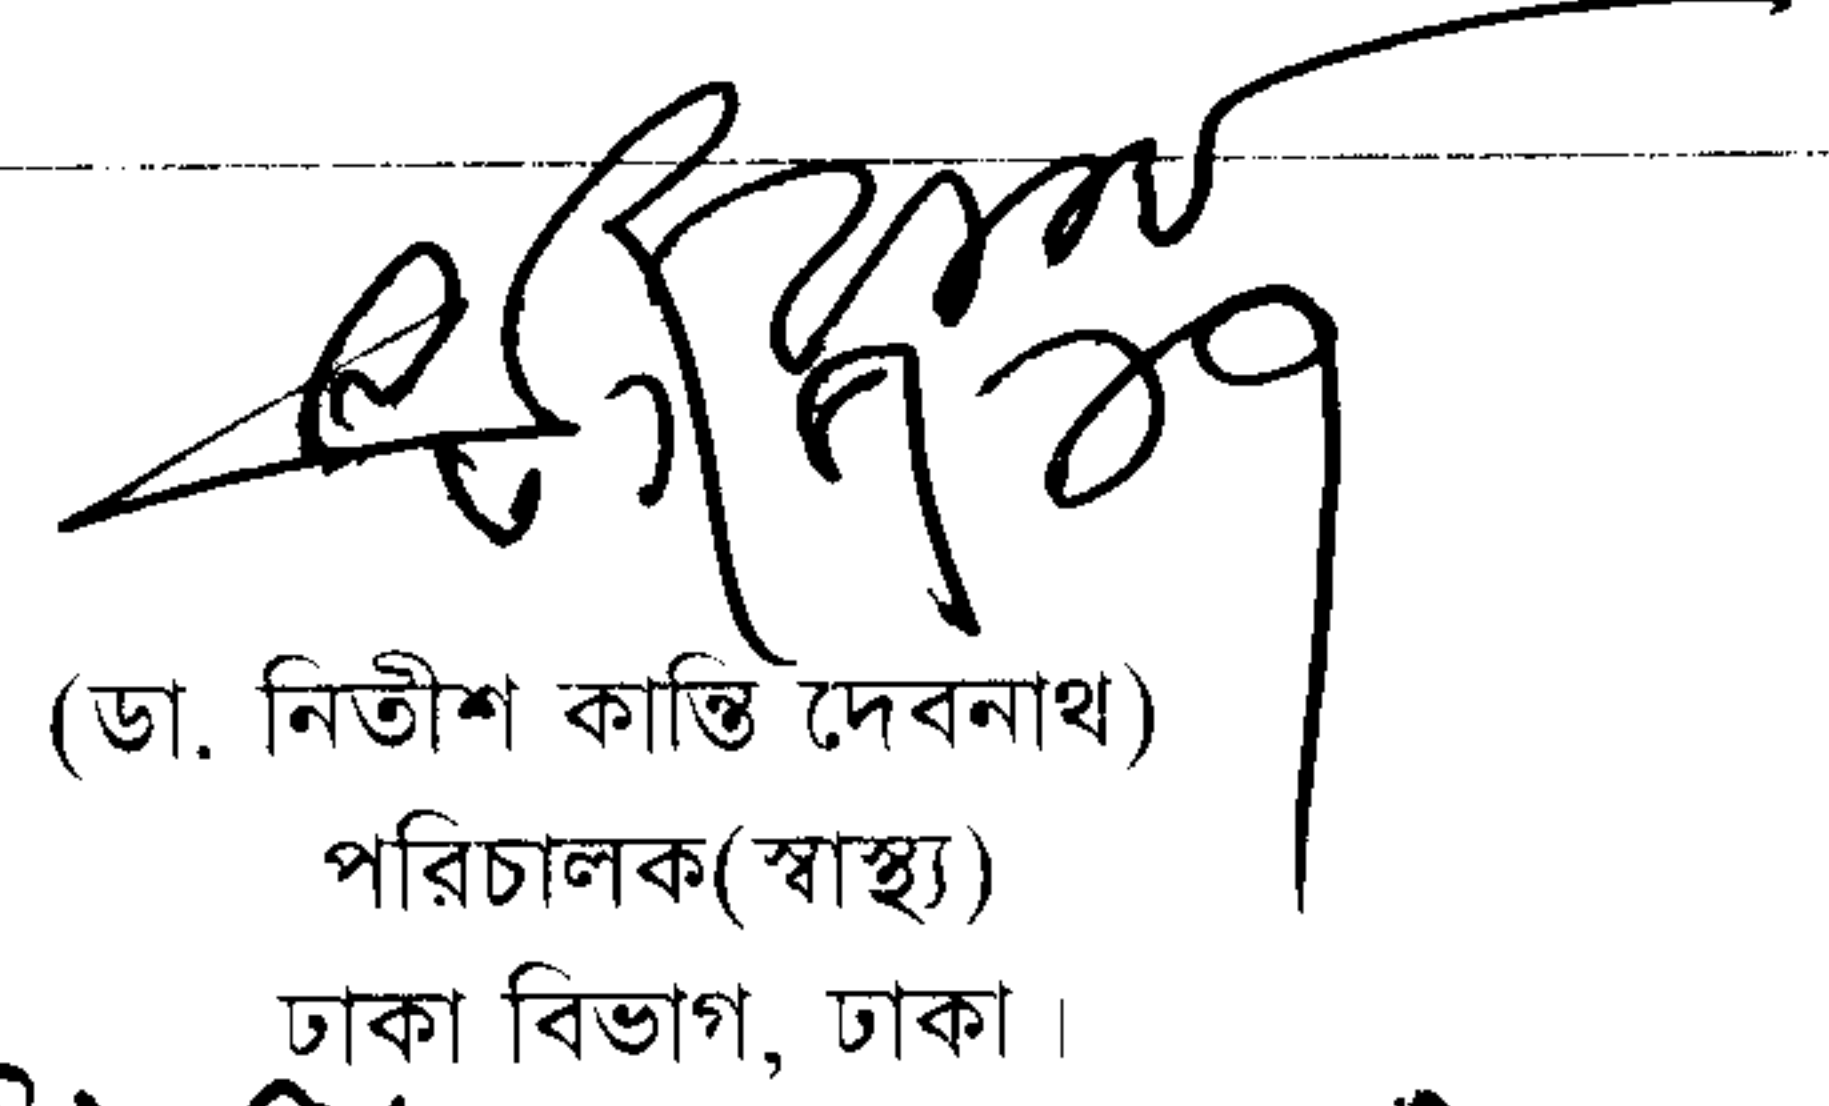 (ডা. নিতীশ কান্তি দেবনাথ)
পরিচালক(স্বাস্থ্য)
ঢাকা বিভাগ, ঢাকা।